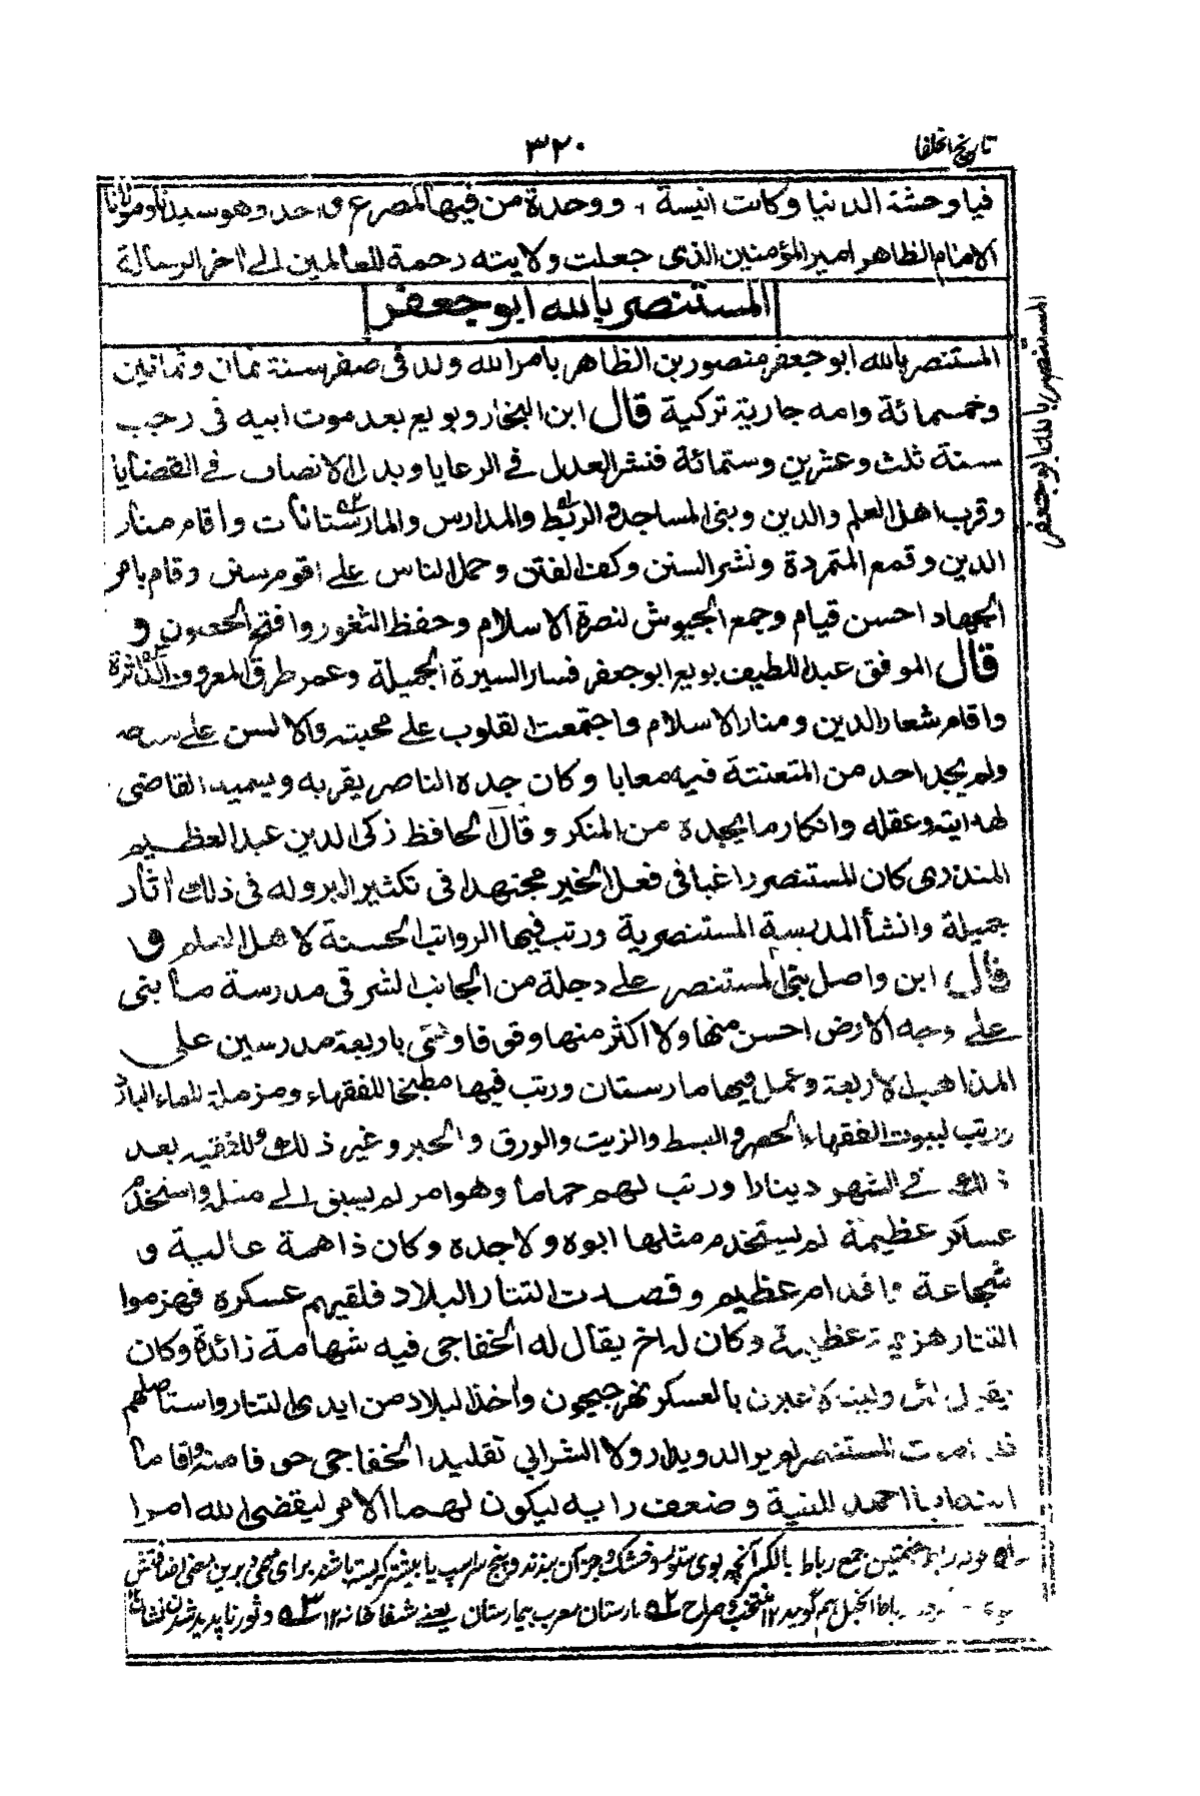 تاريخ الخلفا
٣٢٠
فيا وحشة الدنيا وكانت انيسة ، ووحدة من فيها لمصرع واحد وهو سيدنا ومولانا
الامام الظاهر امير المؤمنين الذى جعلت ولايته رحمة للعالمين الى اخر الرسالة
المستنصر بالله ابو جعفر
المستنصر بالله ابو جعفر
المستنصر بالله ابو جعفر منصور بن الظاهر بامر الله ولد فى صفر سنة ثمان وثمانين
وخمسمائة وامه جارية تركية قال ابن النجار وبويع بعد موت ابيه فى رجب
سنة ثلث وعشرين وستمائة فنشر العدل فى الرعايا وبذل الانصاف فى القضايا
وقرب اهل العلم والدين وبنى المساجد و الربط والمدارس والمارستانات واقام منار
الدين وقمع المتمردة ونشر السنن وكف الفتن وحمل الناس على اقوم سنن وقام بامر
الجهاد احسن قيام وجمع الجيوش لنصرة الاسلام وحفظ الثغور وافتح الحصون و
قال الموفق عبد اللطيف بويع ابو جعفر فسار السيرة الجميلة وعمر طرق المعروف الداثرة
واقام شعار الدين ومنار الاسلام واجتمعت القلوب على محبته والالسن على مدحه
ولم يجد احد من المتعنتة فيه معابا وكان جده الناصر يقربه ويسميه القاضى
لهدايته وعقله وانكار ما يجده من المنكر وقال الحافظ زكى الدين عبد العظيم
المنذرى كان المستنصر راغبا فى فعل الخير مجتهدا فى تكثير البر وله فى ذلك اثار
جميلة وانشأ المدرسة المستنصرية ورتب فيها الرواتب الحسنة لاهل العلم و
قال ابن واصل بنى المستنصر على دجلة من الجانب الشرقى مدرسة ما بنى
على وجه الارض احسن منها ولا اكثر منها وقوفا وهى باربعة مدرسين على
المذاهب الاربعة وعمل فيها مارستان ورتب فيها مطبخا للفقهاء ومزملة للماء البارد
ورتب لبيوت الفقهاء الحصر و البسط والزيت والورق والحبر وغير ذلك وللفقيه بعد
ذلك فى الشهر دينارا ورتب لهم حماما وهو امر لم يسبق الى مثله واستخدم
عساكر عظيمة لم يستخدم مثلها ابوه ولا جده وكان ذا همة عالية و
شجاعة و اقدام عظيم وقصدت التتار البلاد فلقيهم عسكره فهزموا
التتار هزيمة عظيمة وكان له اخ يقال له الخفاجى فيه شهامة زائدة وكان
يقول لئن وليت لاعبرن بالعسكر نهر جيحون واخذ البلاد من ايدى التتار واستاصلهم
مات المستنصر لم ير الدويدار ولا الشرابى تقليد الخفاجى خوفا منه واقاما
ابنه ابا احمد للينة وضعف رايه ليكون لهما الامر ليقضى الله امرا
جمع رباط بالكسر آنچه بوى
بارستان معرب بيمارستان يعنے شفا خانه ١٢